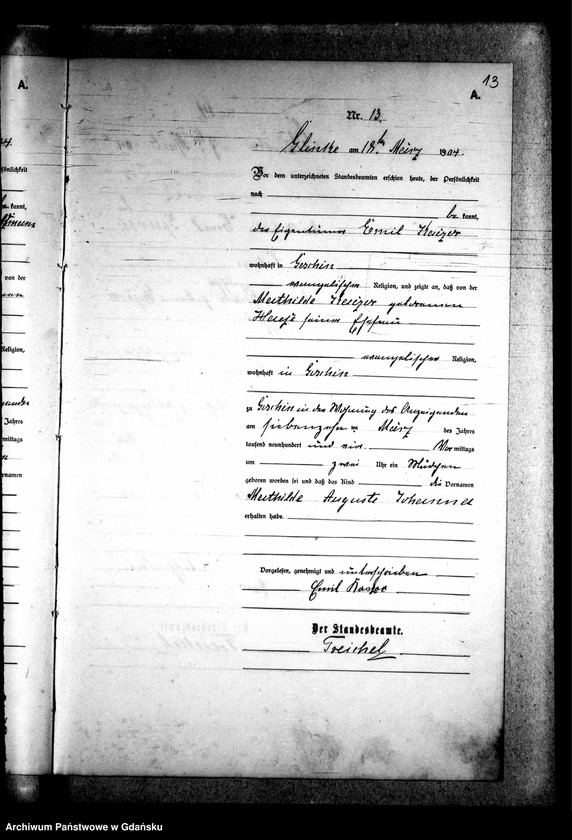 13
A.
A.
Nr. 13.
Glinke am 18ten März 1904.
Vor dem unterzeichneten Standesbeamten erschien heute, der Persönlichkeit
nach
be kannt,
der Eigentümer Emil
wohnhaft in Groschin
evangelischer Religion, und zeigte an, daß von der
Mathilde geborenen
seiner Ehefrau
evangelischer Religion,
wohnhaft in Groschin
zu Groschin in der Wohnung des Anzeigenden
am siebenzehnten März des Jahres
tausend neunhundert und vier Vor mittags
um zwei Uhr ein Mädchen
geboren worden sei und daß das Kind die Vornamen
Mathilde Auguste Johanna
erhalten habe.
Vorgelesen, genehmigt und unterschrieben
Emil
Der Standesbeamte.
Treichel
Archiwum Państwowe w Gdańsku